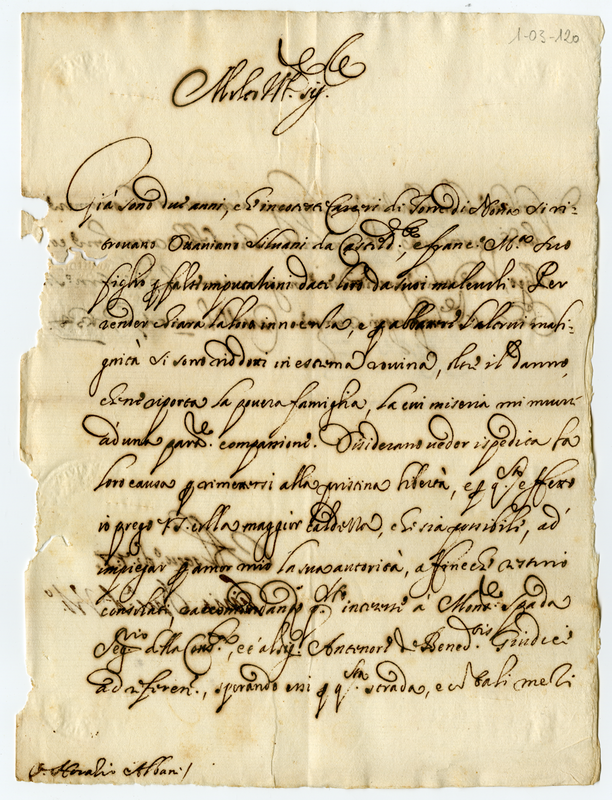 1-03-120
Molto Ill.re Sig.re
Già sono due anni, che in coteste Carceri di Torre di Nona si ri-
trovano Ottaviano Silvani da Castel d..., e franc.o M.a suo
figlio p false imputationi dateli loro da suoi malevoli. Per
render chiara la loro innocenza, e p abbattere l'altrui mali-
gnità si sono ridotti in estrema rovina, oltre il danno,
che ne riporta la povera famiglia, la cui miseria mi muove
ad una parte compassione. Desiderano veder ispedita la
loro causa p rimettersi alla pristina libertà, e p q.sto effetto
io prego V.S. colla maggior caldezza, che sia possibile, ad
impiegar p amor mio la sua autorità, affinche restino
consolati, raccomandando q.sto interesse à Mons.re Spada
Seg.rio della Cons.ta, et al Sig. Antenore de Bened.tis Giudice
ad referen., sperando essi p q.sta strada, e co' tali mezi
S. Horatio Albani